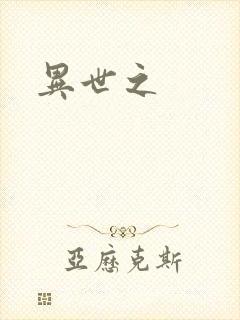 異世之
亞歷克斯